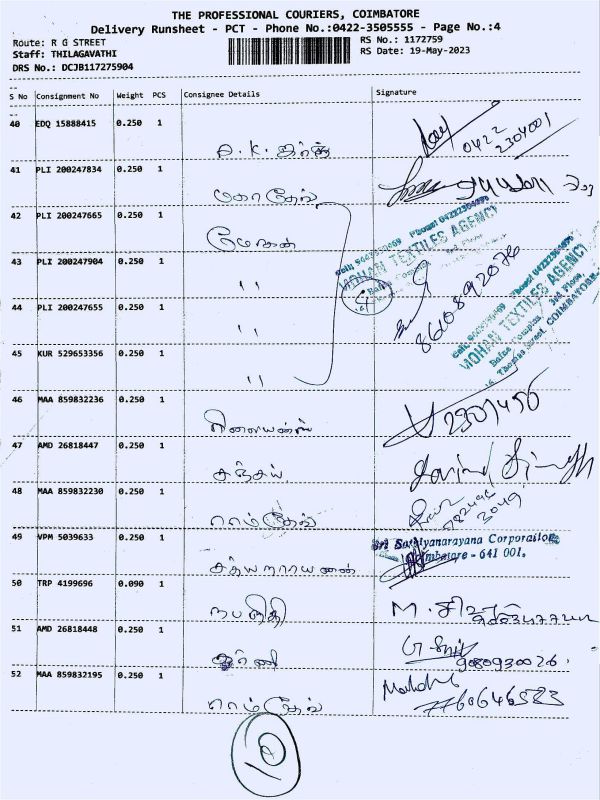 THE PROFESSIONAL COURIERS, COIMBATORE
Delivery Runsheet - PCT - Phone No.:0422-3505555 - Page No.:4
Route: R G STREET
RS No.: 1172759
Staff: THILAGAVATHI
RS Date: 19-May-2023
DRS No.: DCJB117275904
S No Consignment No Weight PCS Consignee Details Signature
40 EDQ 15888415 0.250 1
0422
2304001
41 PLI 200247834 0.250 1
மகாதேவ்
42 PLI 200247665 0.250 1
மோகன்
43 PLI 200247904 0.250 1
" 4
MOHAN TEXTILES AGENCY
8610892076
44 PLI 200247655 0.250 1
"
MOHAN TEXTILES AGENCY
45 KUR 529653356 0.250 1
"
46 MAA 859832236 0.250 1
ரிலையன்ஸ் 2301456
47 AMD 26818447 0.250 1
சஞ்சய்
48 MAA 859832230 0.250 1
ராம்தேவ்
49 VPM 5039633 0.250 1
சத்யநாராயணன்
Sri Sathyanarayana Corporation
Coimbatore - 641 001.
50 TRP 4199696 0.090 1
51 AMD 26818448 0.250 1
9080930026
52 MAA 859832195 0.250 1
ராம்தேவ் 7760646583
10